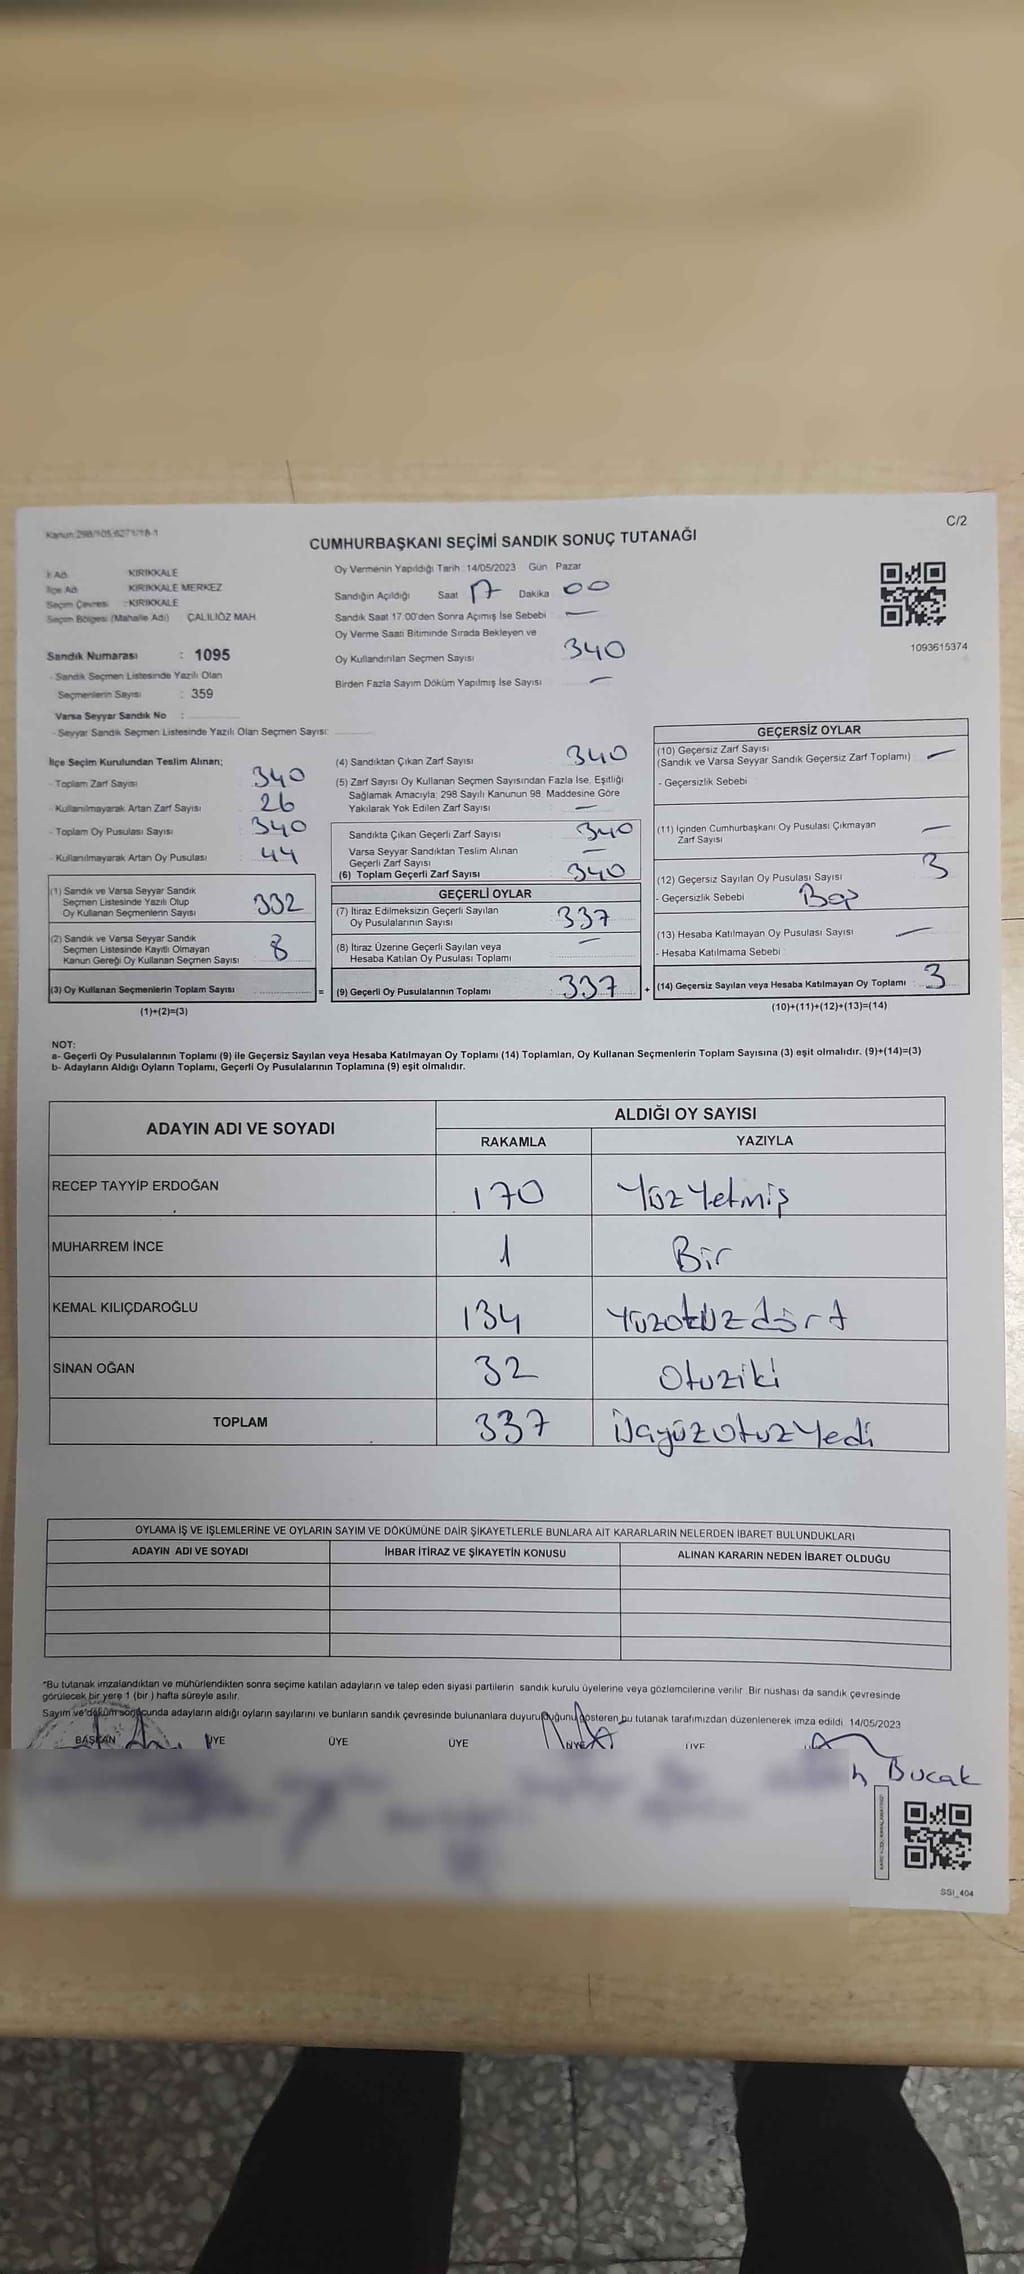 Kanun:298/105;6271/18-1
C/2
CUMHURBAŞKANI SEÇİMİ SANDIK SONUÇ TUTANAĞI
İl Adı KIRIKKALE
İlçe Adı KIRIKKALE MERKEZ
Seçim Çevresi :KIRIKKALE
Seçim Bölgesi (Mahalle Adı) ÇALILIÖZ MAH
Sandık Numarası : 1095
- Sandık Seçmen Listesinde Yazılı Olan
Seçmenlerin Sayısı : 359
Varsa Seyyar Sandık No :
- Seyyar Sandık Seçmen Listesinde Yazılı Olan Seçmen Sayısı:
Oy Vermenin Yapıldığı Tarih :14/05/2023 Gün Pazar
Sandığın Açıldığı Saat 17 Dakika 00
Sandık Saat 17:00'den Sonra Açımış İse Sebebi —
Oy Verme Saati Bitiminde Sırada Bekleyen ve
Oy Kullandırılan Seçmen Sayısı 340
Birden Fazla Sayım Döküm Yapılmış İse Sayısı —
1093615374
İlçe Seçim Kurulundan Teslim Alınan;
- Toplam Zarf Sayısı 340
- Kullanılmayarak Artan Zarf Sayısı 26
- Toplam Oy Pusulası Sayısı 340
- Kullanılmayarak Artan Oy Pusulası 44
(1) Sandık ve Varsa Seyyar Sandık
Seçmen Listesinde Yazılı Olup
Oy Kullanan Seçmenlerin Sayısı 332
(2) Sandık ve Varsa Seyyar Sandık
Seçmen Listesinde Kayıtlı Olmayan
Kanun Gereği Oy Kullanan Seçmen Sayısı 8
(3) Oy Kullanan Seçmenlerin Toplam Sayısı =
(1)+(2)=(3)
(4) Sandıktan Çıkan Zarf Sayısı 340
(5) Zarf Sayısı Oy Kullanan Seçmen Sayısından Fazla İse, Eşitliği
Sağlamak Amacıyla; 298 Sayılı Kanunun 98. Maddesine Göre
Yakılarak Yok Edilen Zarf Sayısı —
Sandıkta Çıkan Geçerli Zarf Sayısı 340
Varsa Seyyar Sandıktan Teslim Alınan
Geçerli Zarf Sayısı —
(6) Toplam Geçerli Zarf Sayısı 340
GEÇERLİ OYLAR
(7) İtiraz Edilmeksizin Geçerli Sayılan
Oy Pusulalarının Sayısı 337
(8) İtiraz Üzerine Geçerli Sayılan veya
Hesaba Katılan Oy Pusulası Toplamı —
(9) Geçerli Oy Pusulalarının Toplamı 337 +
GEÇERSİZ OYLAR
(10) Geçersiz Zarf Sayısı
(Sandık ve Varsa Seyyar Sandık Geçersiz Zarf Toplamı) —
- Geçersizlik Sebebi
(11) İçinden Cumhurbaşkanı Oy Pusulası Çıkmayan
Zarf Sayısı —
(12) Geçersiz Sayılan Oy Pusulası Sayısı 3
- Geçersizlik Sebebi
(13) Hesaba Katılmayan Oy Pusulası Sayısı —
- Hesaba Katılmama Sebebi
(14) Geçersiz Sayılan veya Hesaba Katılmayan Oy Toplamı : 3
(10)+(11)+(12)+(13)=(14)
NOT:
a- Geçerli Oy Pusulalarının Toplamı (9) ile Geçersiz Sayılan veya Hesaba Katılmayan Oy Toplamı (14) Toplamları, Oy Kullanan Seçmenlerin Toplam Sayısına (3) eşit olmalıdır. (9)+(14)=(3)
b- Adayların Aldığı Oyların Toplamı, Geçerli Oy Pusulalarının Toplamına (9) eşit olmalıdır.
ADAYIN ADI VE SOYADI ALDIĞI OY SAYISI
RAKAMLA YAZIYLA
RECEP TAYYİP ERDOĞAN 170 Yüz Yetmiş
MUHARREM İNCE 1 Bir
KEMAL KILIÇDAROĞLU 134 Yüzotuzdört
SİNAN OĞAN 32 Otuziki
TOPLAM 337 ÜçyüzotuzYedi
OYLAMA İŞ VE İŞLEMLERİNE VE OYLARIN SAYIM VE DÖKÜMÜNE DAİR ŞİKAYETLERLE BUNLARA AİT KARARLARIN NELERDEN İBARET BULUNDUKLARI
ADAYIN ADI VE SOYADI İHBAR İTİRAZ VE ŞİKAYETİN KONUSU ALINAN KARARIN NEDEN İBARET OLDUĞU
"Bu tutanak imzalandıktan ve mühürlendikten sonra seçime katılan adayların ve talep eden siyasi partilerin sandık kurulu üyelerine veya gözlemcilerine verilir. Bir nüshası da sandık çevresinde
görülecek bir yere 1 (bir ) hafta süreyle asılır.
Sayım ve döküm sonucunda adayların aldığı oyların sayılarını ve bunların sandık çevresinde bulunanlara duyurulduğunu gösteren bu tutanak tarafımızdan düzenlenerek imza edildi. 14/05/2023
BAŞKAN ÜYE ÜYE ÜYE ÜYE ÜYE
Bucak
SSI_404